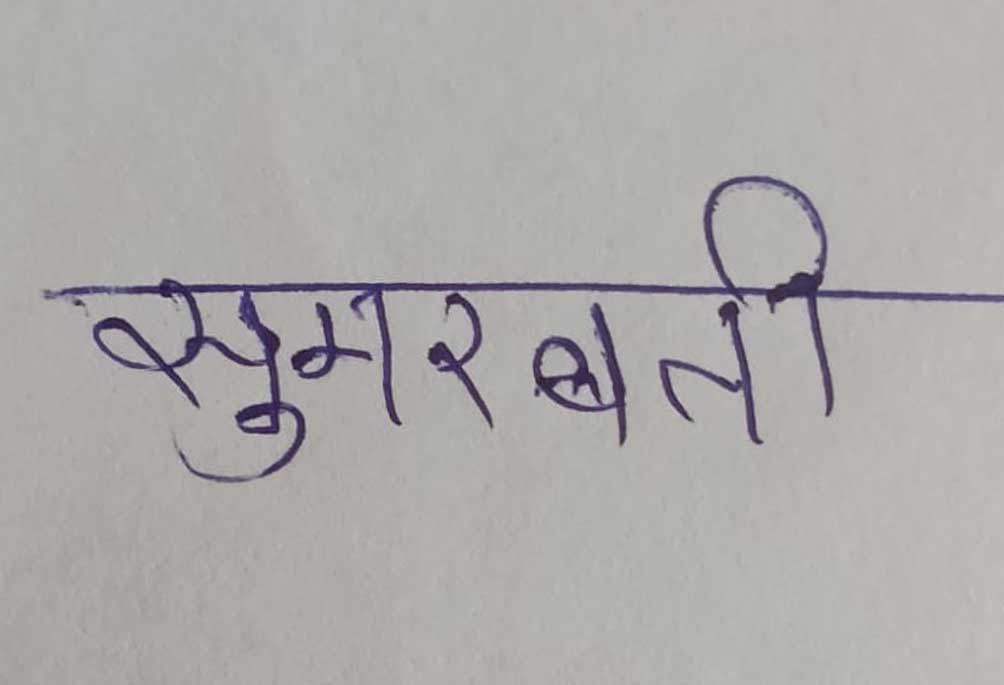 सुमरबती